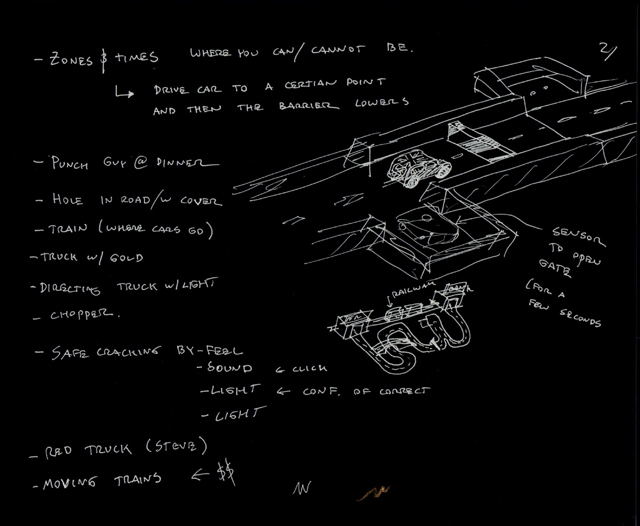 2/
- ZONES & TIMES WHERE YOU CAN/CANNOT BE.
↳ DRIVE CAR TO A CERTIAN POINT
AND THEN THE BARRIER LOWERS
- PUNCH GUY @ DINNER
- HOLE IN ROAD/W COVER
- TRAIN (WHERE CARS GO)
- TRUCK W/ GOLD
- DIRECTING TRUCK W/LIGHT
- CHOPPER.
- SAFE CRACKING BY-FEEL
- SOUND ← CLICK
- LIGHT ← CONF. OF CORRECT
- LIGHT
- RED TRUCK (STEVE)
- MOVING TRAINS ← $$
SENSOR
TO OPEN
GATE
(FOR A
FEW SECONDS
RAILWAY